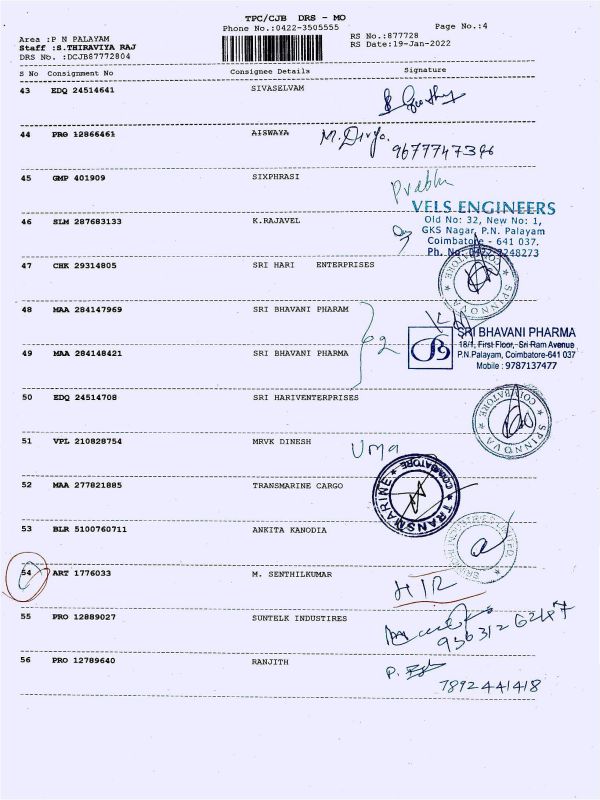 TPC/CJB DRS - MO
Phone No.:0422-3505555
Page No.:4
Area :P N PALAYAM
RS No.:877728
Staff :S.THIRAVIYA RAJ
RS Date:19-Jan-2022
DRS No. :DCJB87772804
S No Consignment No Consignee Details Signature
43 EDQ 24514641 SIVASELVAM
44 PRO 12866461 AISWAYA M. Divya.
9677747396
45 GMP 401909 SIXPHRASI Prabhu
VELS ENGINEERS
Old No: 32, New No: 1,
46 SLM 287683133 K.RAJAVEL GKS Nagar, P.N. Palayam
Coimbatore - 641 037.
Ph. No: 0422-2248273
47 CHK 29314805 SRI HARI ENTERPRISES
SPINNOVA COIMBATORE
48 MAA 284147969 SRI BHAVANI PHARAM
SRI BHAVANI PHARMA
18/1, First Floor, Sri Ram Avenue
49 MAA 284148421 SRI BHAVANI PHARMA P.N.Palayam, Coimbatore-641 037
Mobile : 9787137477
50 EDQ 24514708 SRI HARIVENTERPRISES
SPINNOVA COIMBATORE
51 VPL 210828754 MRVK DINESH Uma
52 MAA 277821885 TRANSMARINE CARGO
TRANSMARINE COIMBATORE
53 BLR 5100760711 ANKITA KANODIA
54 ART 1776033 M. SENTHILKUMAR H/R
55 PRO 12889027 SUNTELK INDUSTIRES
9363126247
56 PRO 12789640 RANJITH
7892441418